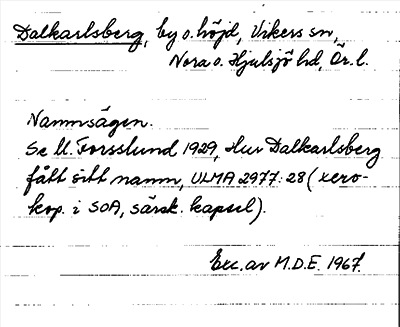 Dalkarlsberg, by o. höjd, Vikers sn,
Nora o. Hjulsjö hd, Ör. l.
Namnsägen.
Se U. Forsslund 1929, Hur Dalkarlsberg
fått sitt namn, ULMA 2977:28 (xero-
kop. i SOA, särsk. kapsel).
Exc. av M.D.E. 1967.